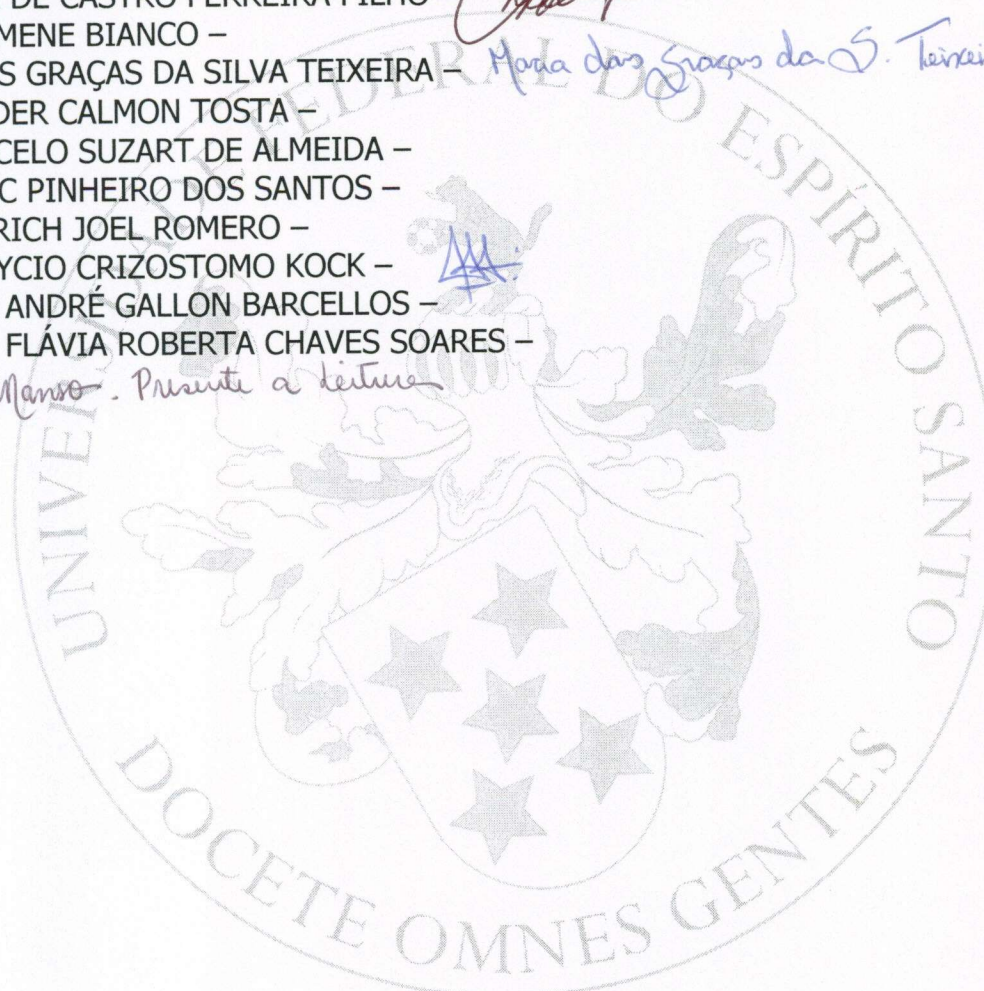 DE CASTRO FERREIRA FILHO
MENE BIANCO –
S GRAÇAS DA SILVA TEIXEIRA – Maria das Graças da S. Teixei
DER CALMON TOSTA –
CELO SUZART DE ALMEIDA –
C PINHEIRO DOS SANTOS –
RICH JOEL ROMERO –
YCIO CRIZOSTOMO KOCK –
ANDRÉ GALLON BARCELLOS –
FLÁVIA ROBERTA CHAVES SOARES –
Manso. Presente a leitura
UNIVERSIDADE FEDERAL DO ESPÍRITO SANTO
DOCETE OMNES GENTES